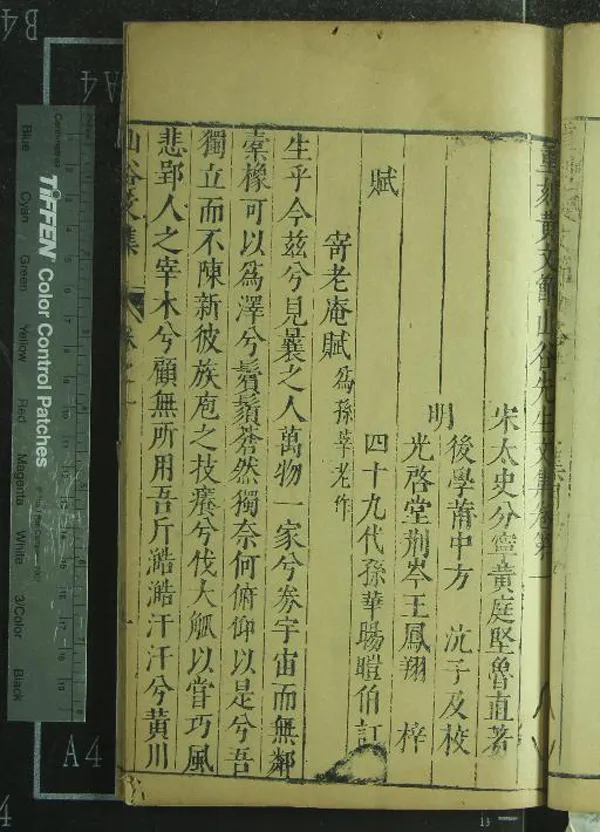 重刻黃文節山谷先生文集卷第一
宋太史分寧黃庭堅魯直著
明
後學莆中方沆子及校
光啓堂荆岑王鳳翔梓
四十九代孫華暘暟伯訂
賦
寄老庵賦為孫莘老作
生乎今兹兮見曩之人萬物一家兮券宇宙而無鄰
槖櫞可以為澤兮鬢鬚蒼然獨奈何俯仰以是兮吾
獨立而不陳新彼族庖之技癢兮伐大觚以嘗巧風
悲郢人之宰木兮顧無所用吾斤澔澔汗汗兮黃川
山谷文集
卷之一
一
B4
A4
A4
4
13
TIFFEN Color Control Patches
Centimetres
Blue
Cyan
Green
Yellow
Red
Magenta
White
3/Color
Black